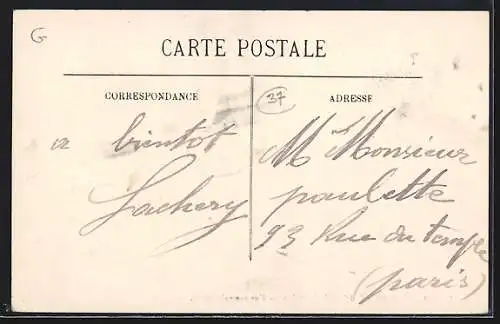 G
CARTE POSTALE
CORRESPONDANCE
a bientot
Lachery
37
ADRESSE
M Monsieur
paulette
93 Rue du temple
(paris)